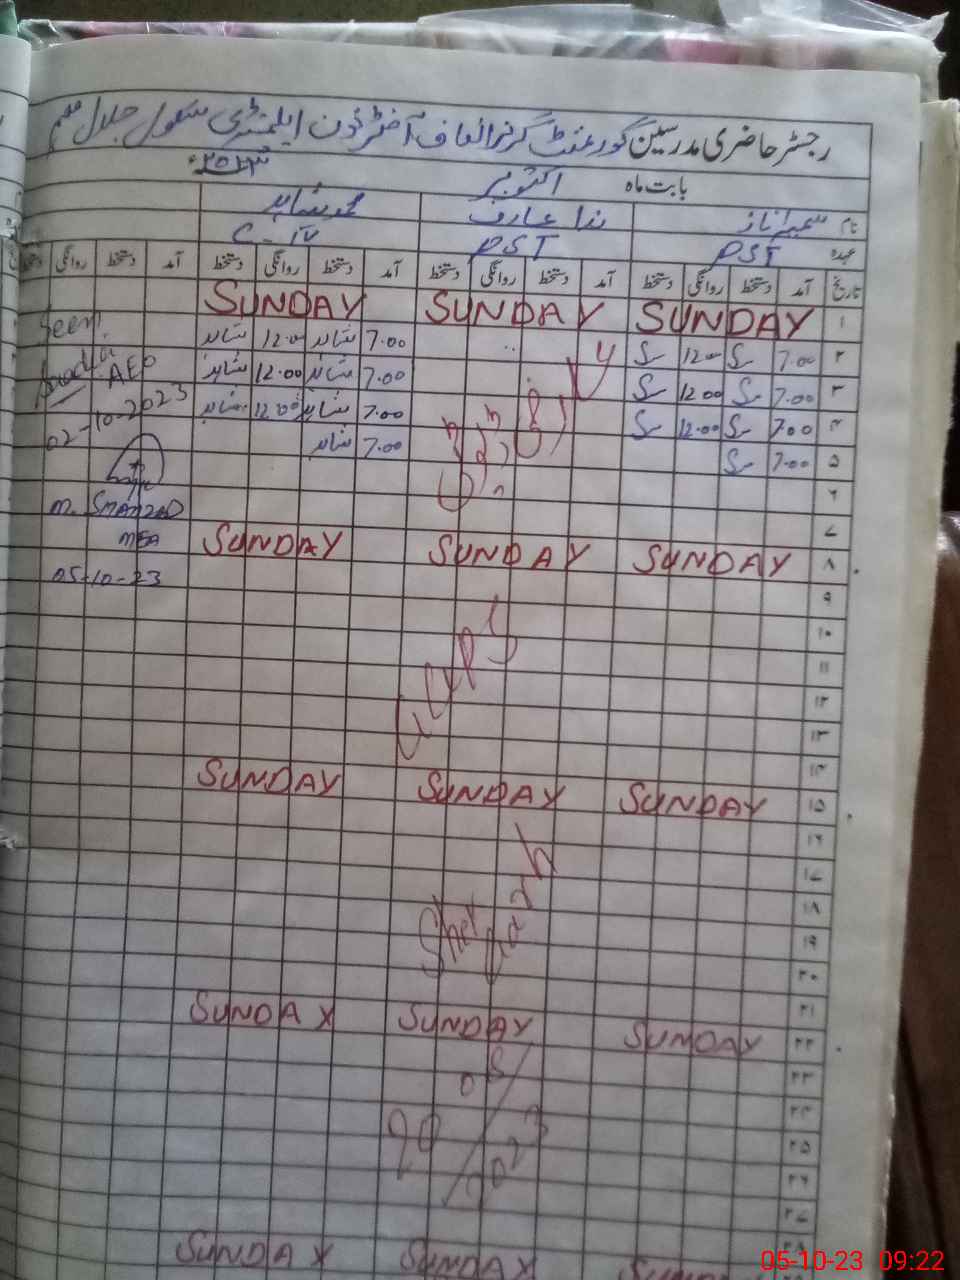 رجسٹر حاضری مدرسین گورنمنٹ گرلز انصاف آفٹر نون ایلمنٹری سکول جلال
بابت ماہ اکتوبر ۲۰۲۳ء
نام سمیرا ناز ندا عارف محمد شاہد
عہدہ PST PST C-IV
تاریخ آمد دستخط روانگی دستخط آمد دستخط روانگی دستخط آمد دستخط روانگی دستخط آمد دستخط روانگی دستخط
۱ SUNDAY SUNDAY SUNDAY
۲ 7.00 12.00 7.00 شاہد 12.00 شاہد
۳ 7.00 12.00 7.00 شاہد 12.00 شاہد
۴ 7.00 12.00 7.00 شاہد 12.00 شاہد
۵ 7.00 7.00 شاہد
۶
۷
۸ SUNDAY SUNDAY SUNDAY
۹
۱۰
۱۱
۱۲
۱۳
۱۴
۱۵ SUNDAY SUNDAY SUNDAY
۱۶
۱۷
۱۸
۱۹
۲۰
۲۱
۲۲ SUNDAY SUNDAY SUNDAY
۲۳
۲۴
۲۵
۲۶
۲۷
۲۸ SUNDAY SUNDAY
Seen
AEO
02-10-2023
M. SHAHZAD
MEA
05-10-23
GGPS
2023
05-10-23 09:22